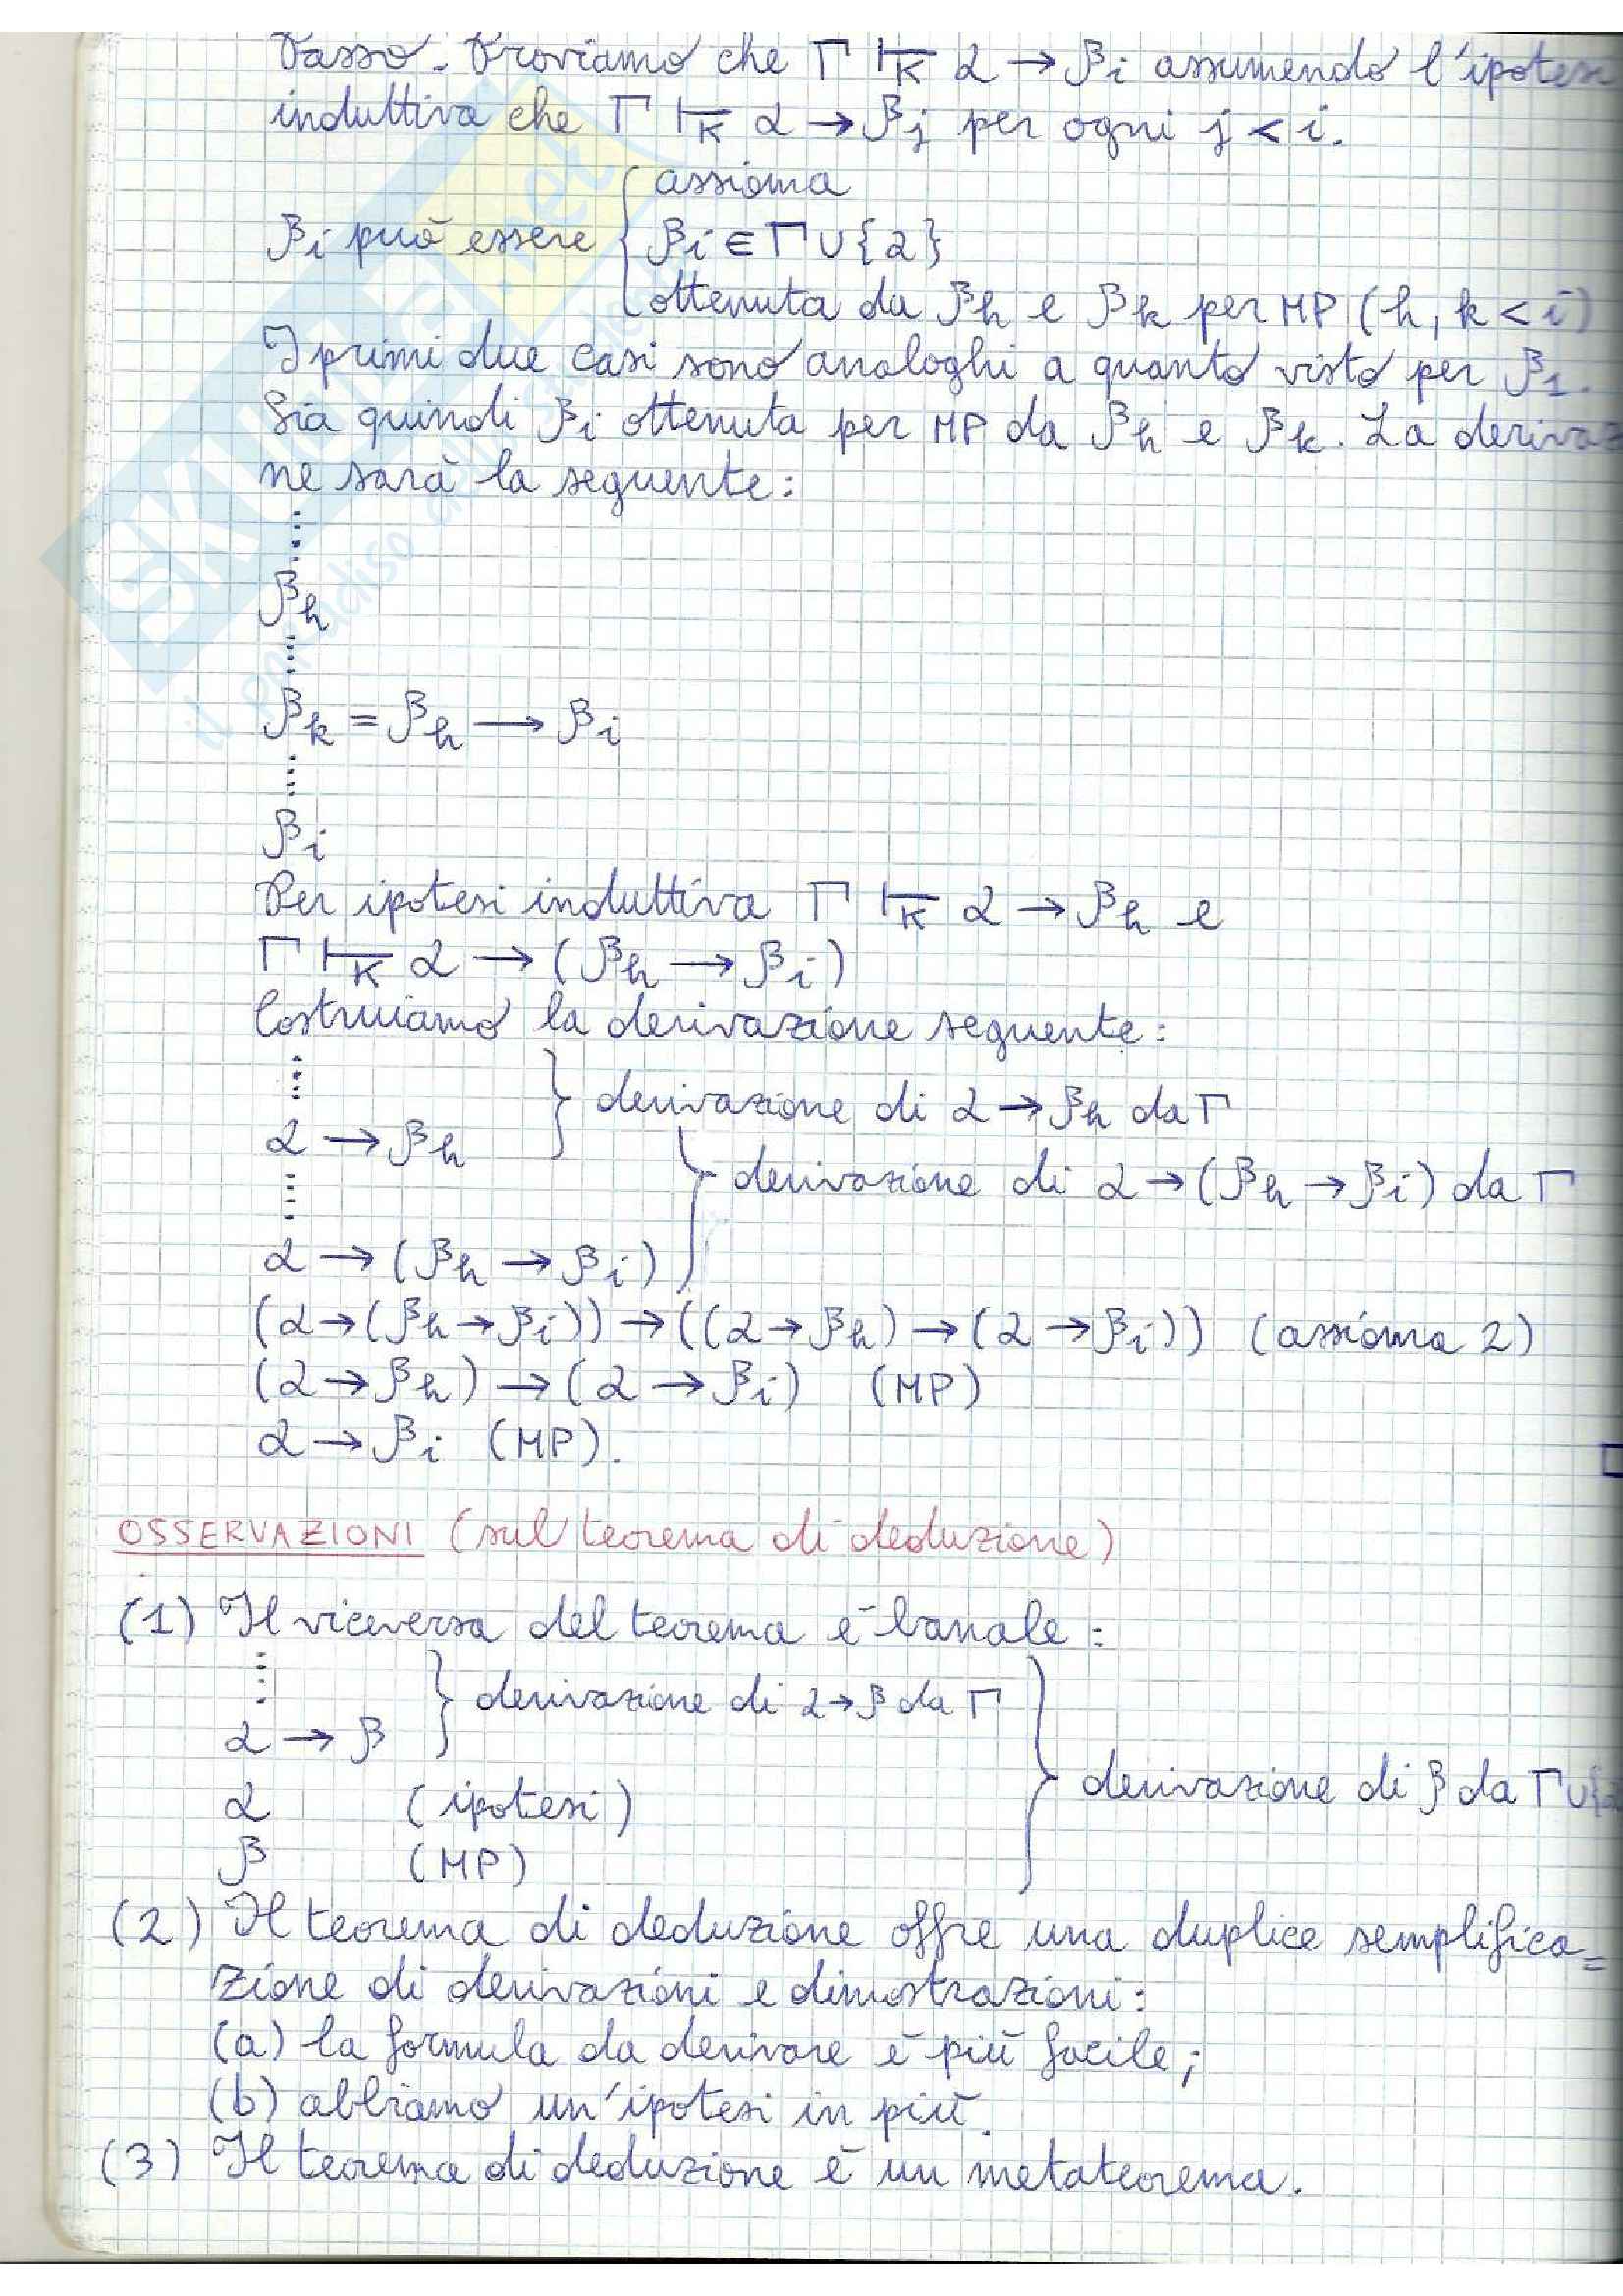 Passo. Proviamo che Γ ⊢K α → βi assumendo l'ipotesi
induttiva che Γ ⊢K α → βj per ogni j < i.
assioma
βi può essere { βi ∈ Γ ∪ {α}
ottenuta da βh e βk per MP (h, k < i)
I primi due casi sono analoghi a quanto visto per β1.
Sia quindi βi ottenuta per MP da βh e βk. La derivaz
ne sarà la seguente:
⋮
βh
⋮
βk = βh → βi
⋮
βi
Per ipotesi induttiva Γ ⊢K α → βh e
Γ ⊢K α → (βh → βi)
Costruiamo la derivazione seguente:
⋮
} derivazione di α → βh da Γ
α → βh
⋮ } derivazione di α → (βh → βi) da Γ
α → (βh → βi)
(α → (βh → βi)) → ((α → βh) → (α → βi)) (assioma 2)
(α → βh) → (α → βi) (MP)
α → βi (MP).
□
OSSERVAZIONI (sul teorema di deduzione)
(1) Il viceversa del teorema è banale:
⋮ } derivazione di α → β da Γ
α → β
} derivazione di β da Γ ∪ {α
α (ipotesi)
β (MP)
(2) Il teorema di deduzione offre una duplice semplifica=
zione di derivazioni e dimostrazioni:
(a) la formula da derivare è più facile;
(b) abbiamo un'ipotesi in più.
(3) Il teorema di deduzione è un metateorema.
SKUOLA.net
il paradiso